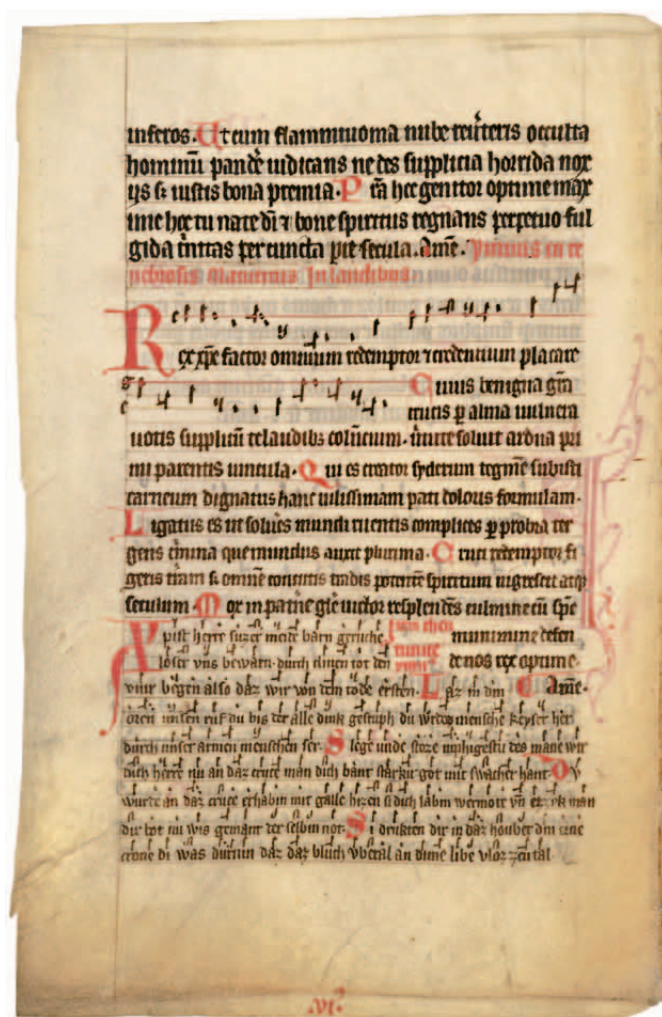 inferos. Et cum flammiuoma nube reuẜteris occulta
hominū pandẽ iudicans ne des supplicia horrida nox
ijs sꝫ iustis bona premia. P cā hec genitor optime max
ime hec tu nate dñi ⁊ bone spiritus regnans perpetuo ful
gida t̃nitas per cuncta pie secula. Amē. Primus in te
nebrosis Matutinis In laudibus
Rex xp̄e factor omnium redemptor ⁊ credentium placare
Cuius benigna gr̄a
crucis p̱ alma uulnera
uotis supplicū te laudibꝫ colẽcium. uirtute soluit ardua pri
mi parentis uincula. Qui es creator syderum tegmē subisti
carneum dignatus hanc uilissimam pati doloris formulam.
Ligatus es ut solu̾es mundi ruentis complices p̱ probra ter
gens c̾mina que mundus auxit plurima. Cruci redemptor fi
geris t̾ram sꝫ omnē concutis tradis potentē spiritum nigrescit atqꝫ
seculum. Mox in pat̾ne gl̾ie uictor resplendēs culmine cū sp̄c
Xpist herre suzer meide barn geruche
munimine defen
loser vns bewarn. durch dinen tot den
de nos rex optime.
vnur begen also daz wir von dem tode ersten. Laz in din
Amē.
oren unsen ruf du bis der alle dink geschuph du wrdes mensche keyser her
durch unser armen menschen ser. Slege unde stoze
dich herre nu an daz cruce man dich bant starkir got mit swacher hant. DV
wurde an daz cruce erhabin mit galle hizen si dich labin wermote vn̄ ezzyk man
dir bot mi wis gemant der selbin not. Si druktẽ dir in daz houbet din eine
crone di was durnin daz daz bluth vberal an dime libe vloz zcu tal
.VI.